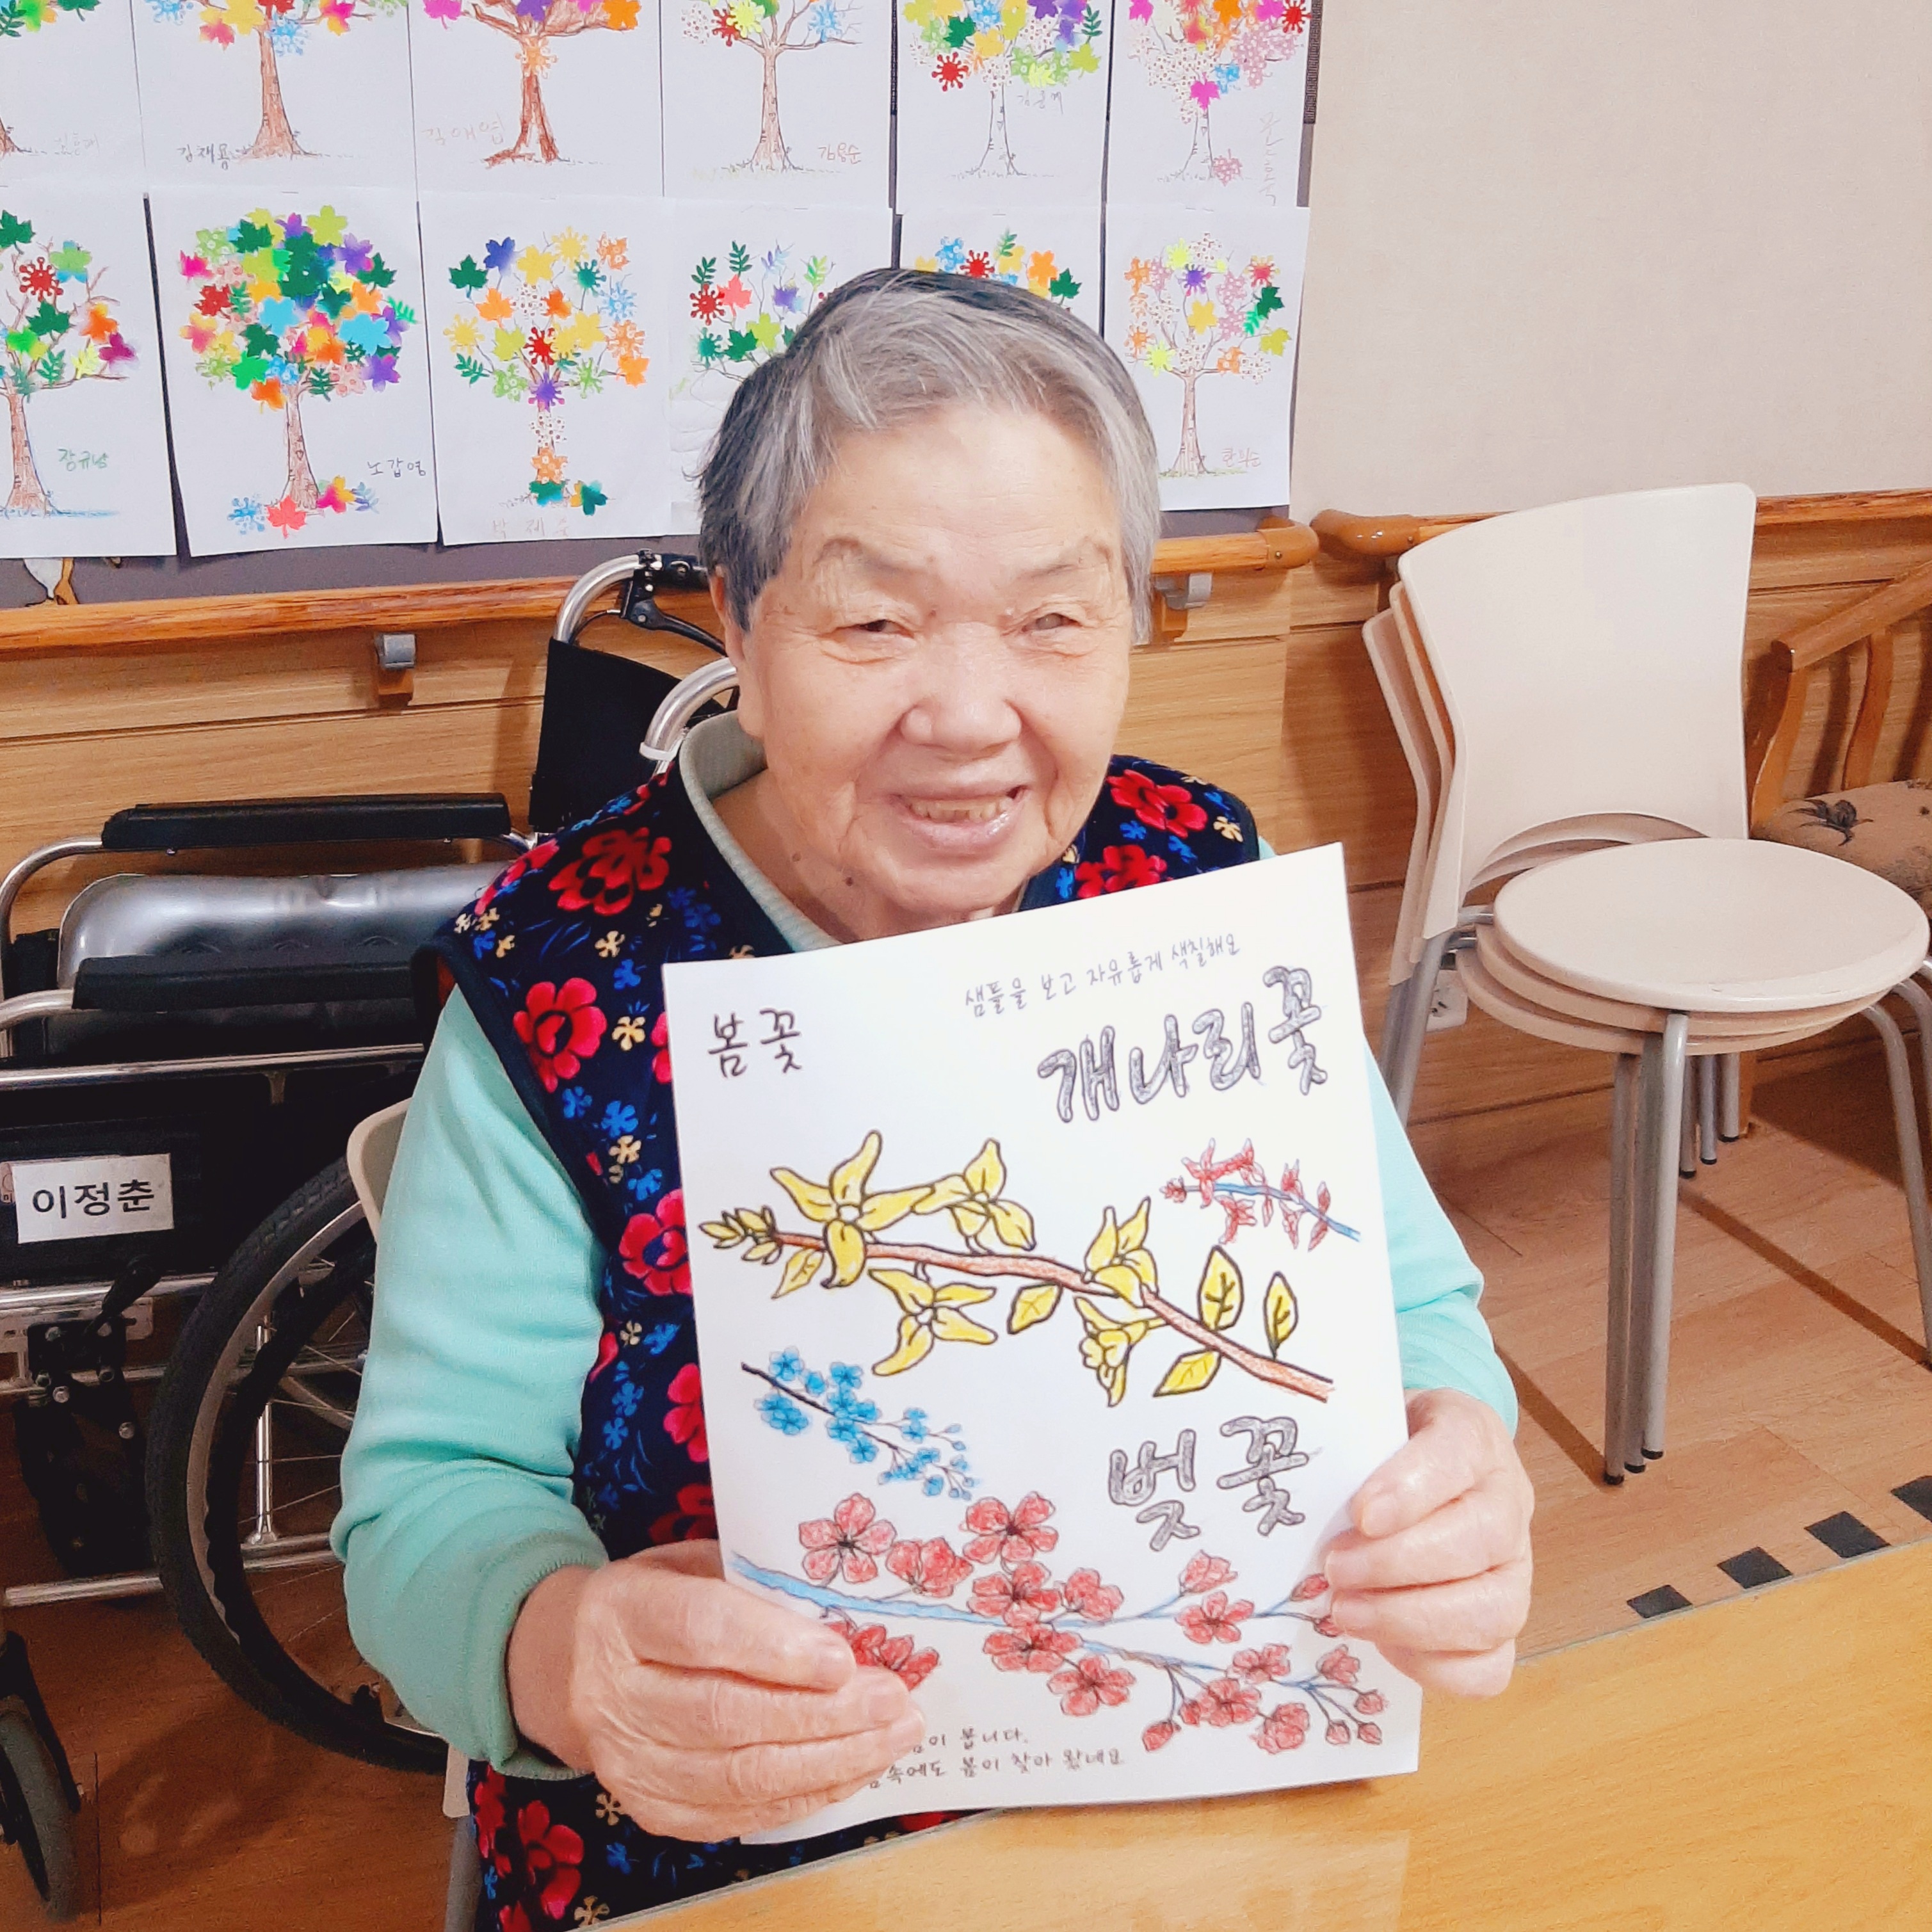 김재홍
김애엽
김용순
장규남
노갑영
박제순
한복순
이정춘
봄꽃
샘플을 보고 자유롭게 색칠해요
개나리꽃
벚꽃
봅니다.
속에도 봄이 찾아 왔네요